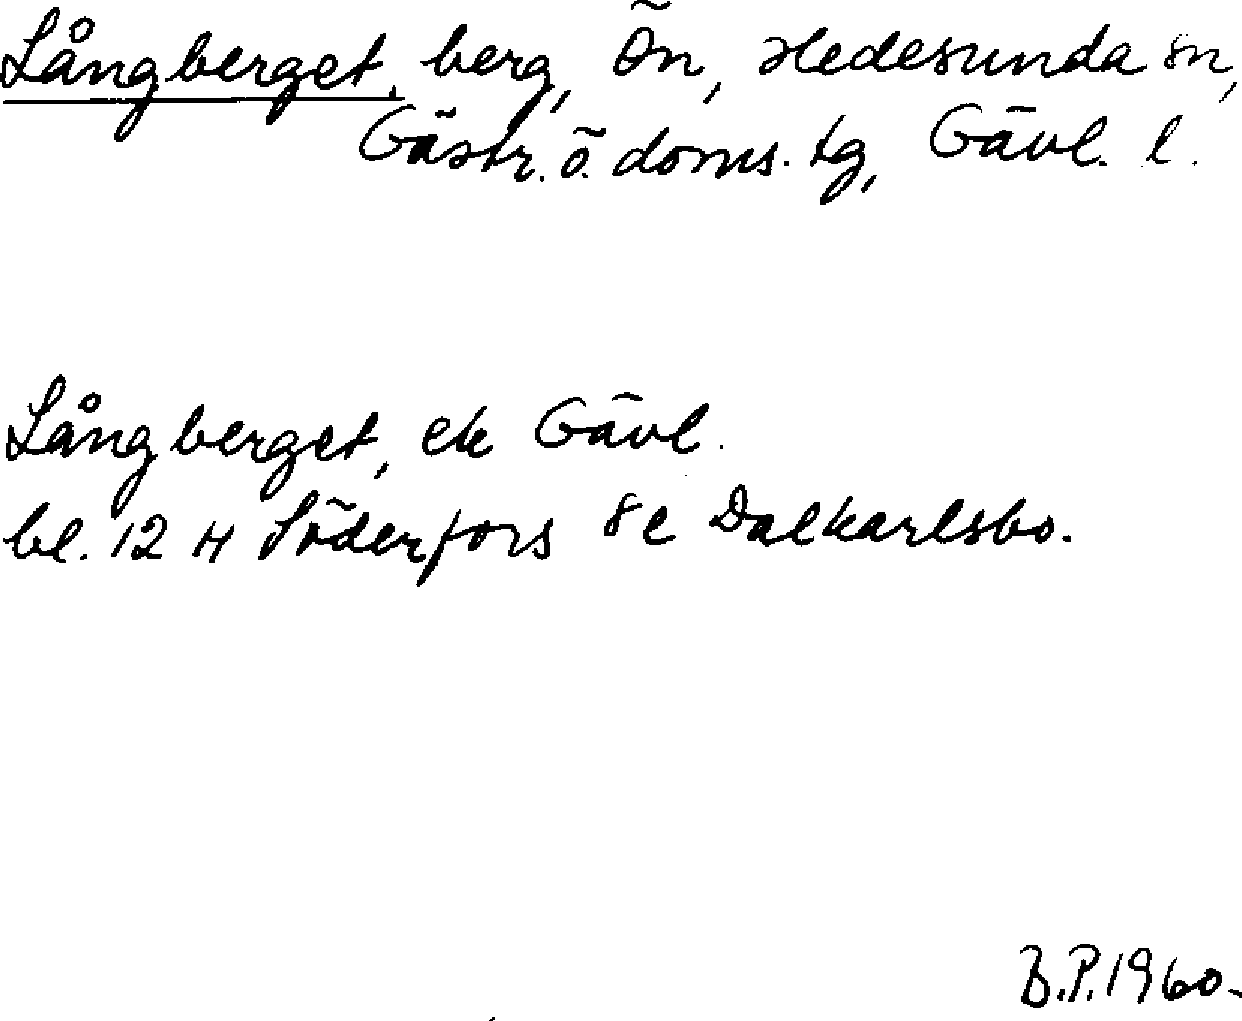 Långberget, berg, Ön, Hedesunda sn,
Gästr. ö. doms. tg, Gävl. l.
Långberget, ek Gävl.
bl. 12 H Söderfors 8e Dalkarlsbo.
B.P. 1960.